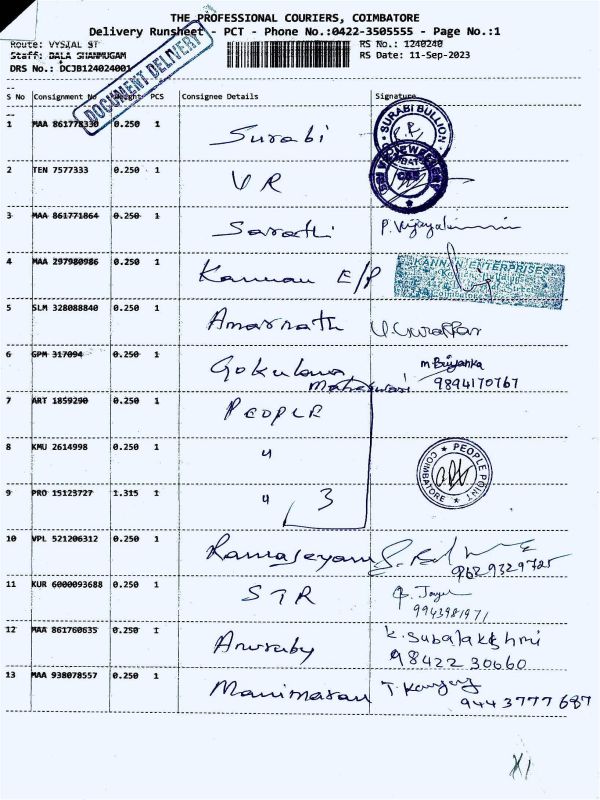 THE PROFESSIONAL COURIERS, COIMBATORE
Delivery Runsheet - PCT - Phone No.:0422-3505555 - Page No.:1
Route: VYSIAL ST
RS No.: 1240240
Staff: BALA SHANMUGAM
RS Date: 11-Sep-2023
DRS No.: DCJB124024001
DOCUMENT DELIVERY
S No Consignment No Weight PCS Consignee Details Signature
1 MAA 861778330 0.250 1 Surabi
SURABI BULLION
2 TEN 7577333 0.250 1 VR
3 MAA 861771864 0.250 1 Sarathi
4 MAA 297980986 0.250 1 Kannan E/P
KANNAN ENTERPRISES
5 SLM 328088840 0.250 1 Amarnath
6 GPM 317094 0.250 1 Gokulam Maheswari M Briyanka
9894170767
7 ART 1859290 0.250 1 PEOPLE
8 KMU 2614998 0.250 1 "
PEOPLE POINT COIMBATORE
9 PRO 15123727 1.315 1 " 3
10 VPL 521206312 0.250 1 Ramajeyam
9629329725
11 KUR 6000093688 0.250 1 STR
9943981971
12 MAA 861760635 0.250 1 K. Subalakshmi
98422 30660
13 MAA 938078557 0.250 1 Manimaran
9443777687